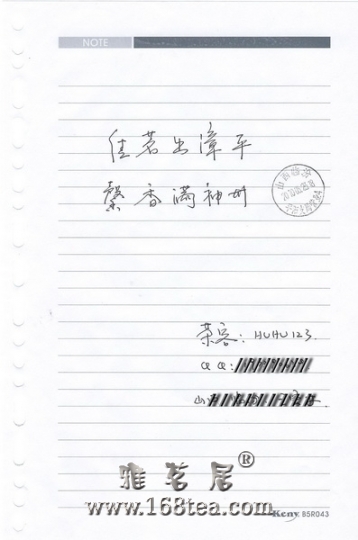 NOTE
佳茗出漳平
馨香满神州
茶客：HUHU123.
QQ：
山
雅茗居®
www.168tea.com
Keny B5R043